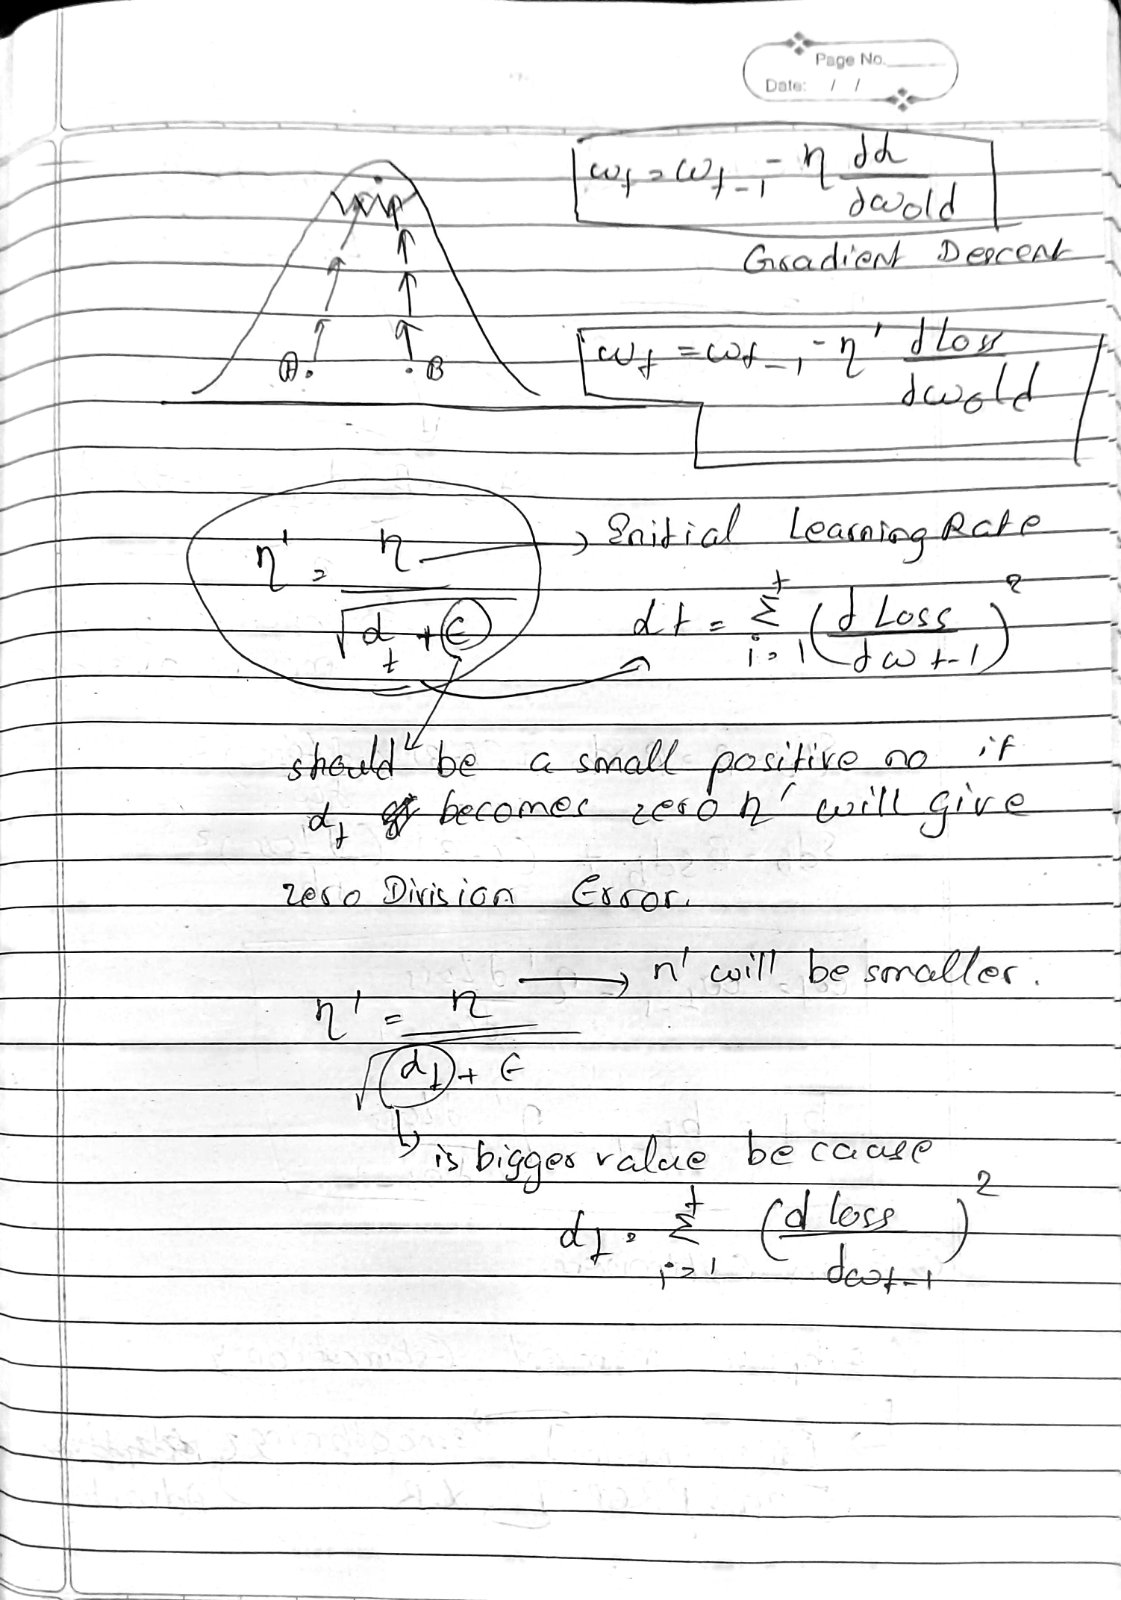 Page No.
Date: / /
ω_t = ω_{t-1} - η dL/dω_old
Gradient Descent
ω_t = ω_{t-1} - η' dLoss/dω_old
A . . B
η' = η/√(α_t + ε) → Initial Learning Rate
αt = Σ_{i=1}^{t} (dLoss/dω_{t-1})²
should be a small positive no if
α_t becomes zero η' will give
zero Division Error.
η' = η/√(α_t + ε) → η' will be smaller.
is bigger value because
α_t = Σ_{i=1}^{t} (d loss/dω_{t-1})²